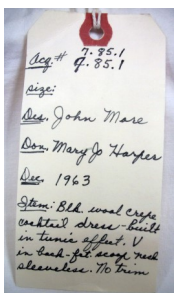 7.85.1
Acq. # 9.85.1
Size:
Des. John More
Don. Mary Jo Harper
Dec. 1963
Item: Blk. wool crepe
cocktail dress - built
in tunic effect. V
in back - frt. scoop neck
sleeveless. No trim